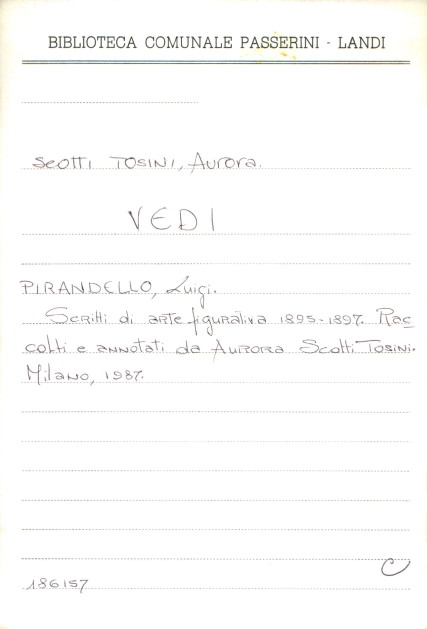 BIBLIOTECA COMUNALE PASSERINI - LANDI
Scotti Tosini, Aurora.
VEDI
PIRANDELLO, Luigi.
Scritti di arte figurativa 1895-1897. Rac=
colti e annotati da Aurora Scotti Tosini.
Milano, 1987.
C
186157